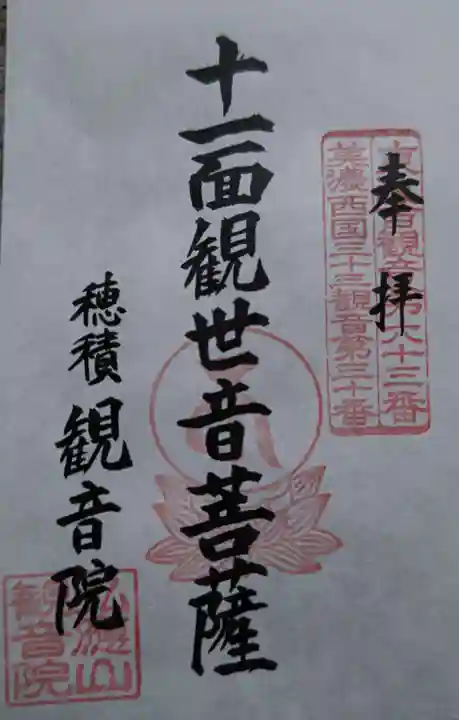 奉拝
観音第六十三番
美濃西国三十三観音第三十番
十一面観世音菩薩
穂積 観音院
観音院